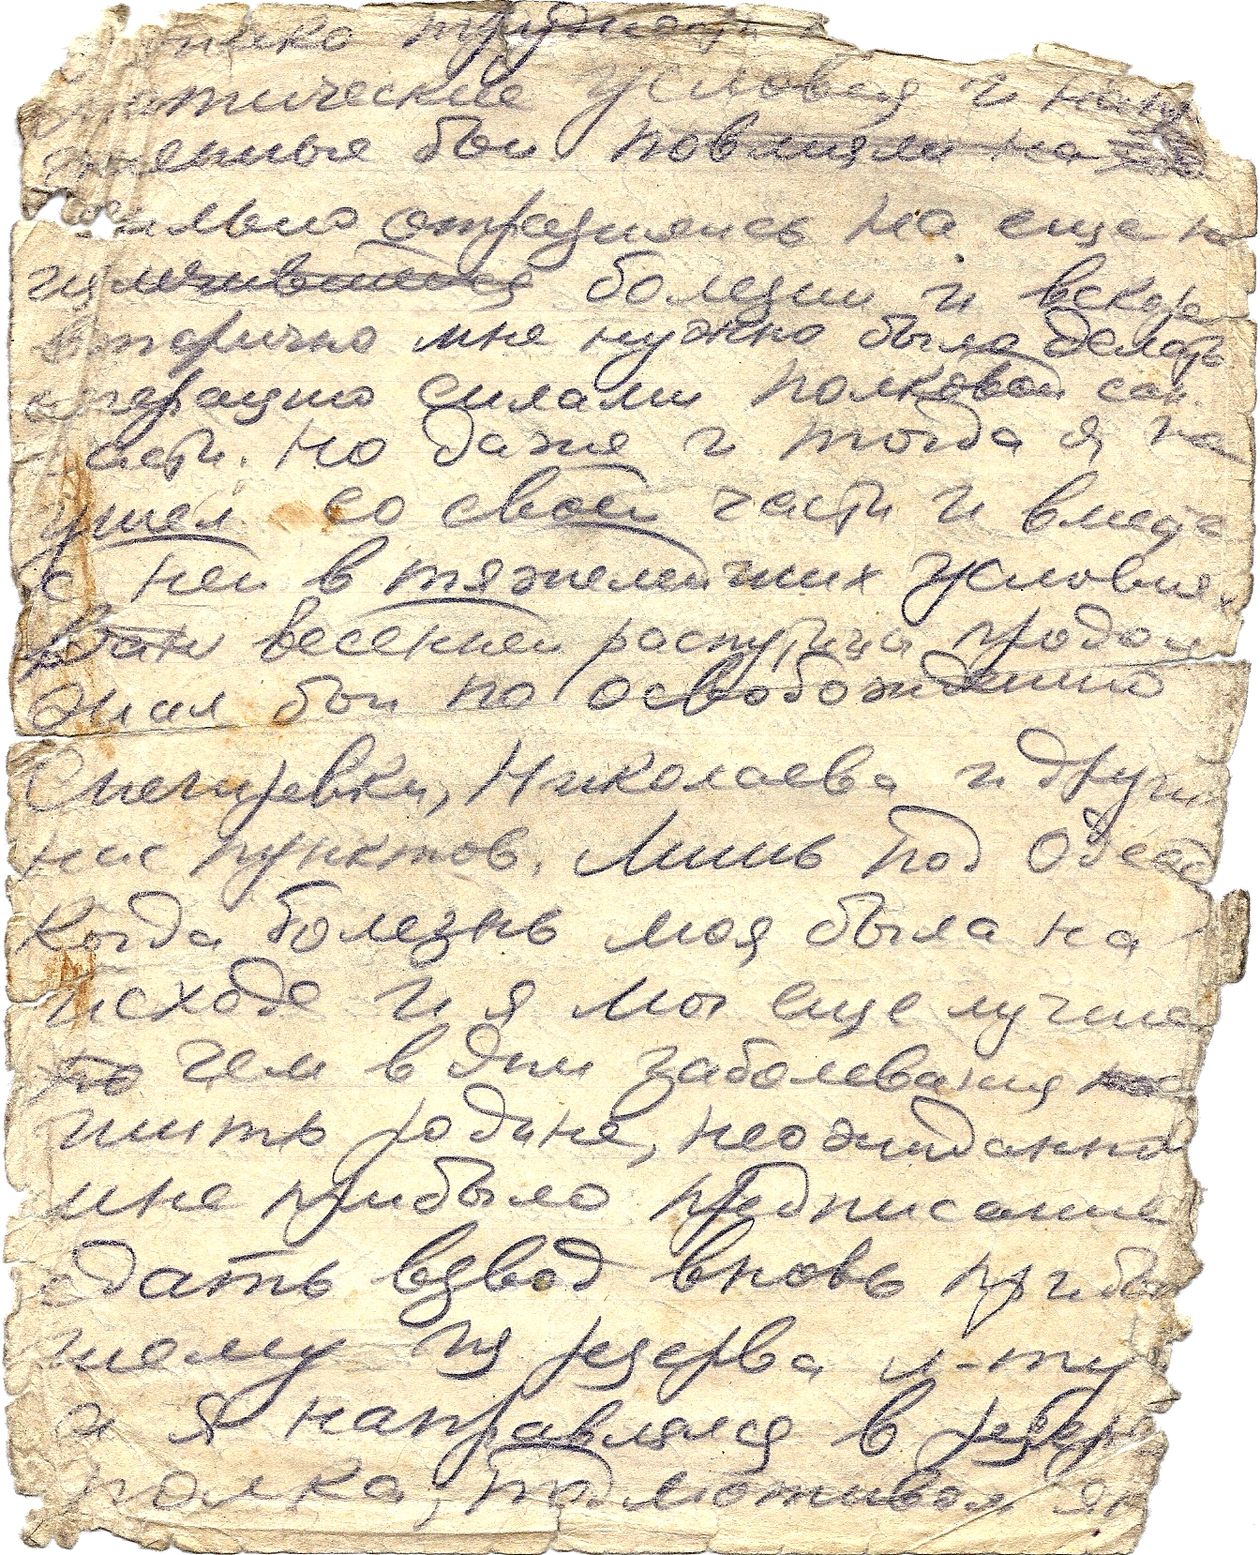 только трудные
матические условия и напря
женные бои повлияли на
сильно отразились на еще не
излечившейся болезни и вскоре
вторично мне нужно было делать
операцию силами полковой сан.
части. Но даже и тогда я не
ушел со своей части и вместе
с ней в тяжелейших условиях
весенней распутицы продол
жал бои по освобождению
Снегиревки, Николаева и других
пунктов. Лишь под Одессой
когда болезнь моя была на
исходе и я мог еще лучше
чем в дни заболевания
жить родине, неожиданно
мне прибыло предписание
сдать взвод вновь прибыв
шему из резерва л-ту
а я направлялся в резерв
полка, под мотивом як